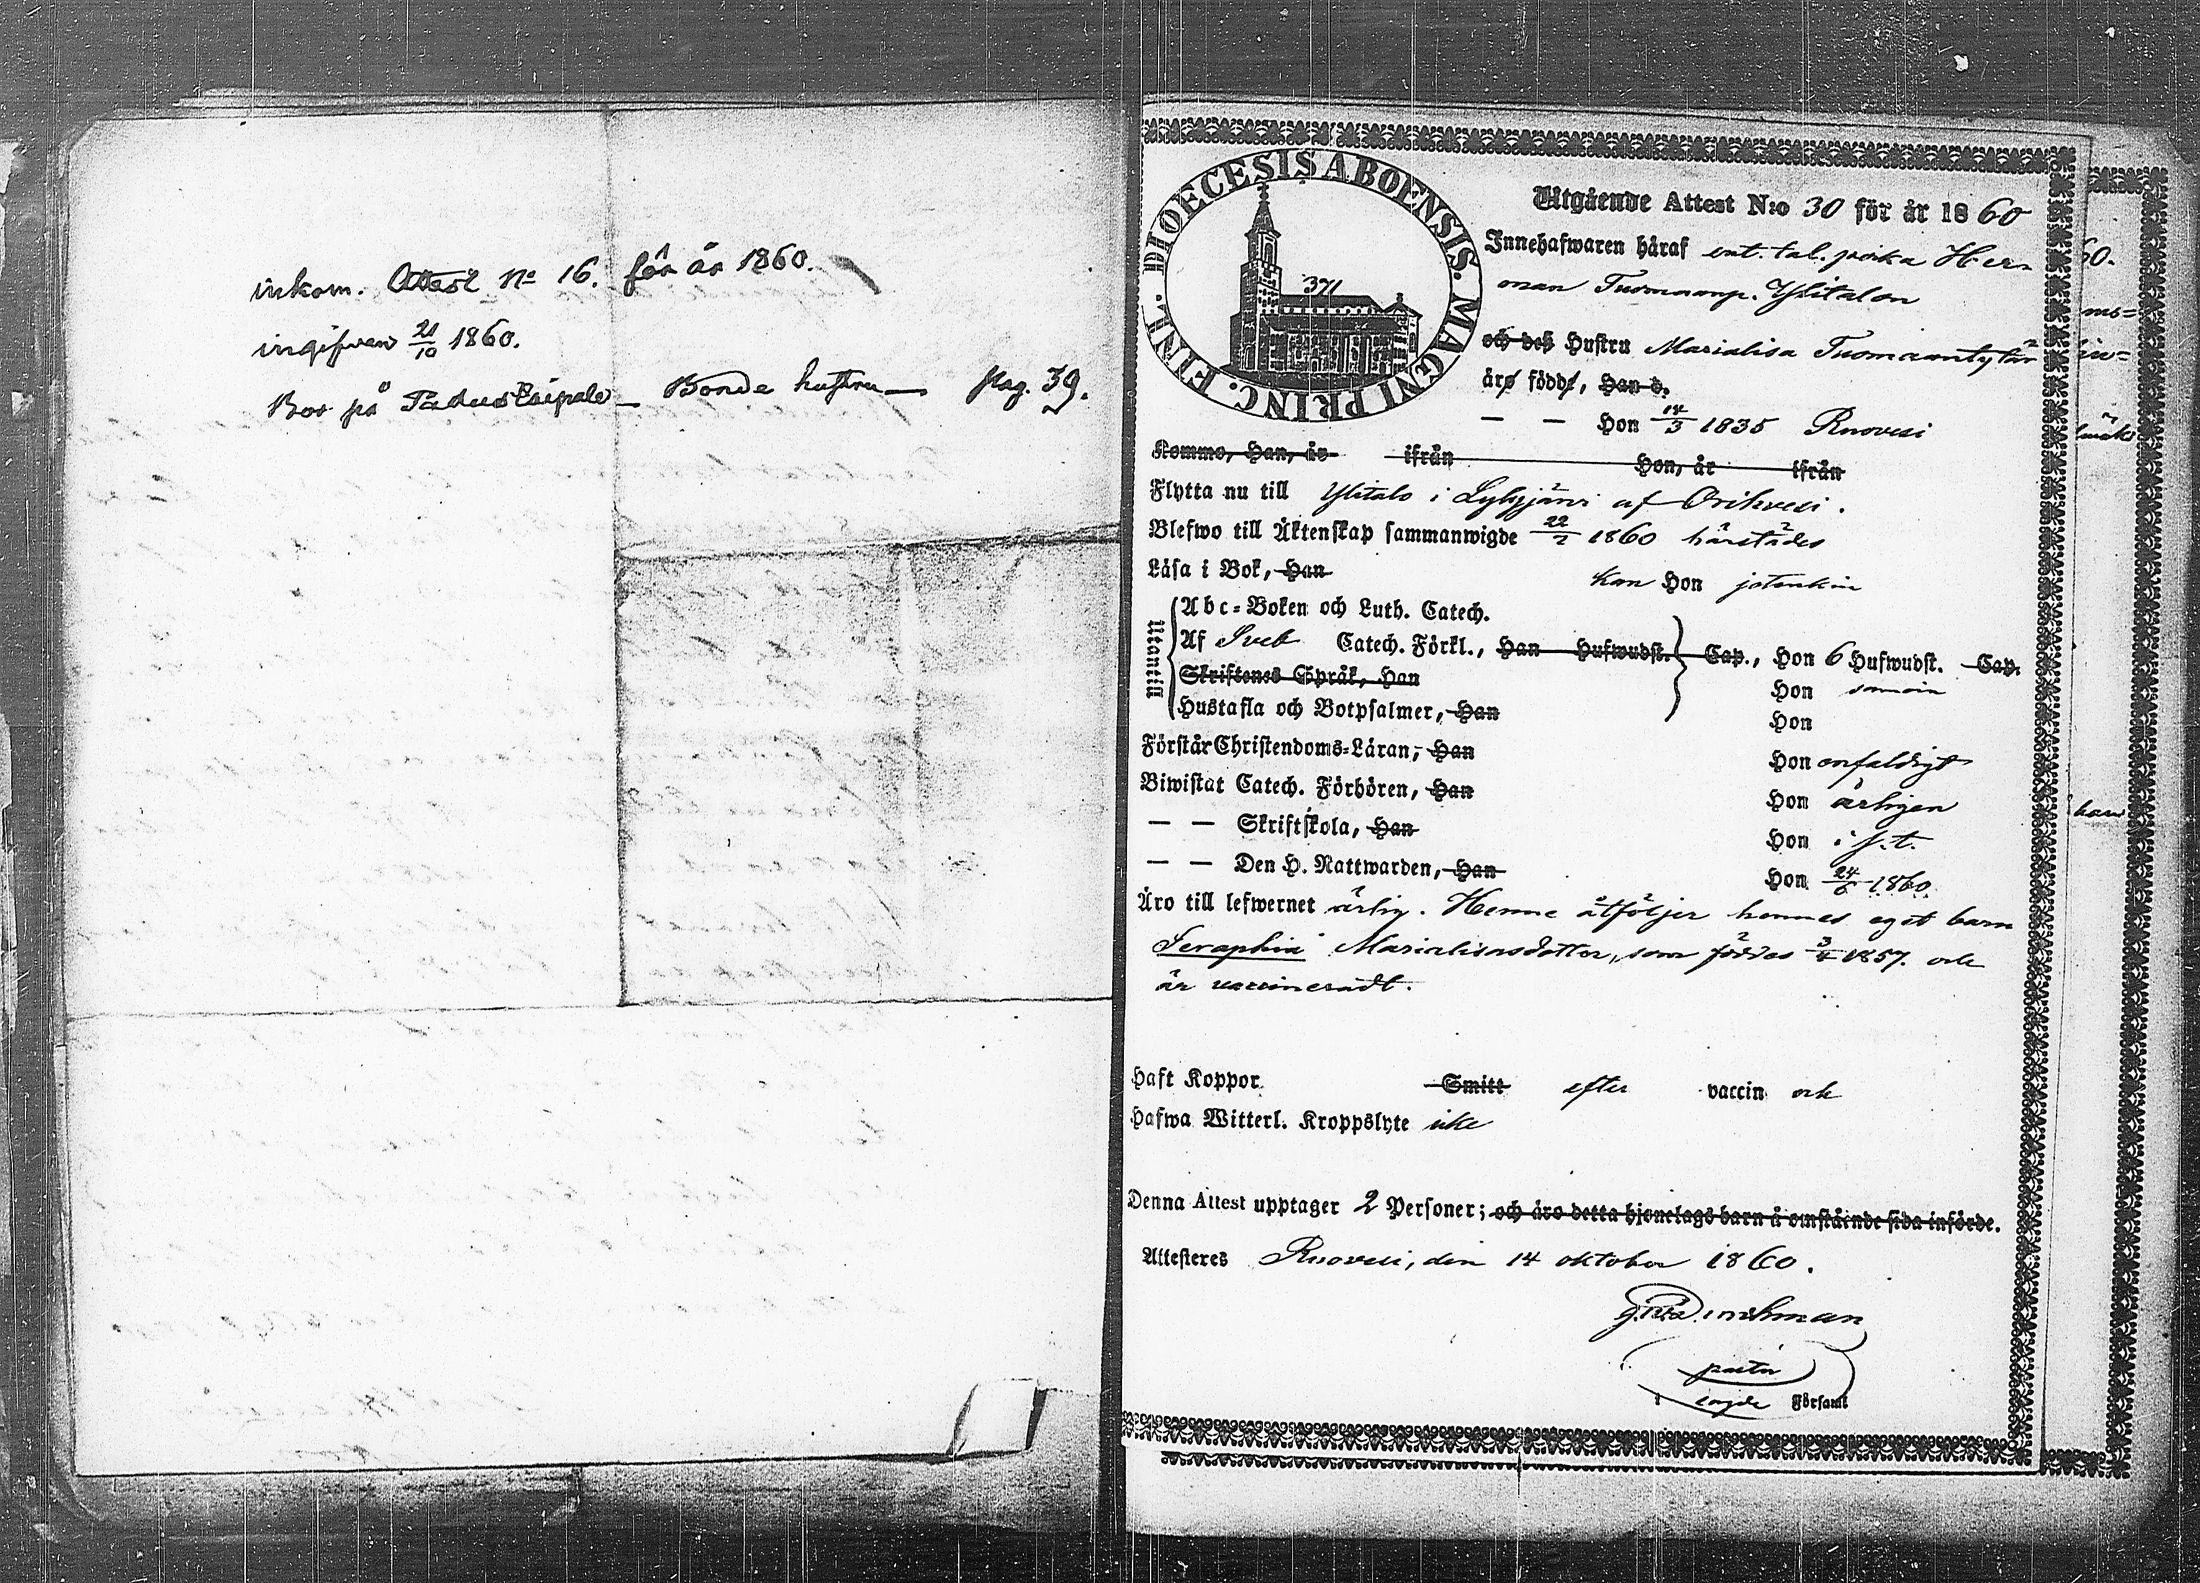 inkom. Attest No 16. för år 1860.
ingifven 21/10 1860.
Bor på Padustaipale – Bonde hustru – pag. 39.
DIOECESIS ABOENSIS. MAGNI PRINC. FINL.
371
Utgående Attest N:o 30 för år 1860
Innehafwaren häraf ent. tal. poika Her-
man Tuomaanp. Ylitalon
och deß Hustru Marialisa Tuomaantytär
äro född, Han d.
— — Hon 14/3 1835 Ruovesi
Kommo, Han, år ifrån Hon, år ifrån
Flytta nu till Ylitalo i Lyhyjärvi af Orihvesi.
Blefwo till Äktenskap sammanwigde 22/2 1860 härstädes
Läsa i Bok, Han kan Hon jotenkin
Utantill
Abc-Boken och Luth. Catech.
Af Sveb Catech. Förkl., Han Hufwudst. Cap., Hon 6 Hufwudst. Cap.
Skriftenes Språk, Han Hon
Hustafla och Botpsalmer, Han Hon
Förstår Christendoms-Läran, Han Hon enfaldigt
Biwistat Catech. Förhören, Han Hon årligen
— — Skriftskola, Han Hon i s. t.
— — Den H. Nattwarden, Han Hon 24/6 1860.
Äro till lefwernet ärlig. Henne åtföljer hennes eget barn
Seraphia Marialisasdotter, som föddes 3/4 1857. och
är vaccineradt.
Haft Koppor Smitt efter vaccin och
Hafwa Witterl. Kroppslyte icke
Denna Attest upptager 2 Personer; och äro detta hjonelags barn å omstående sida införde.
Attesteres Ruovesi, den 14 oktober 1860.
pastor
i Församl
60.
ms=